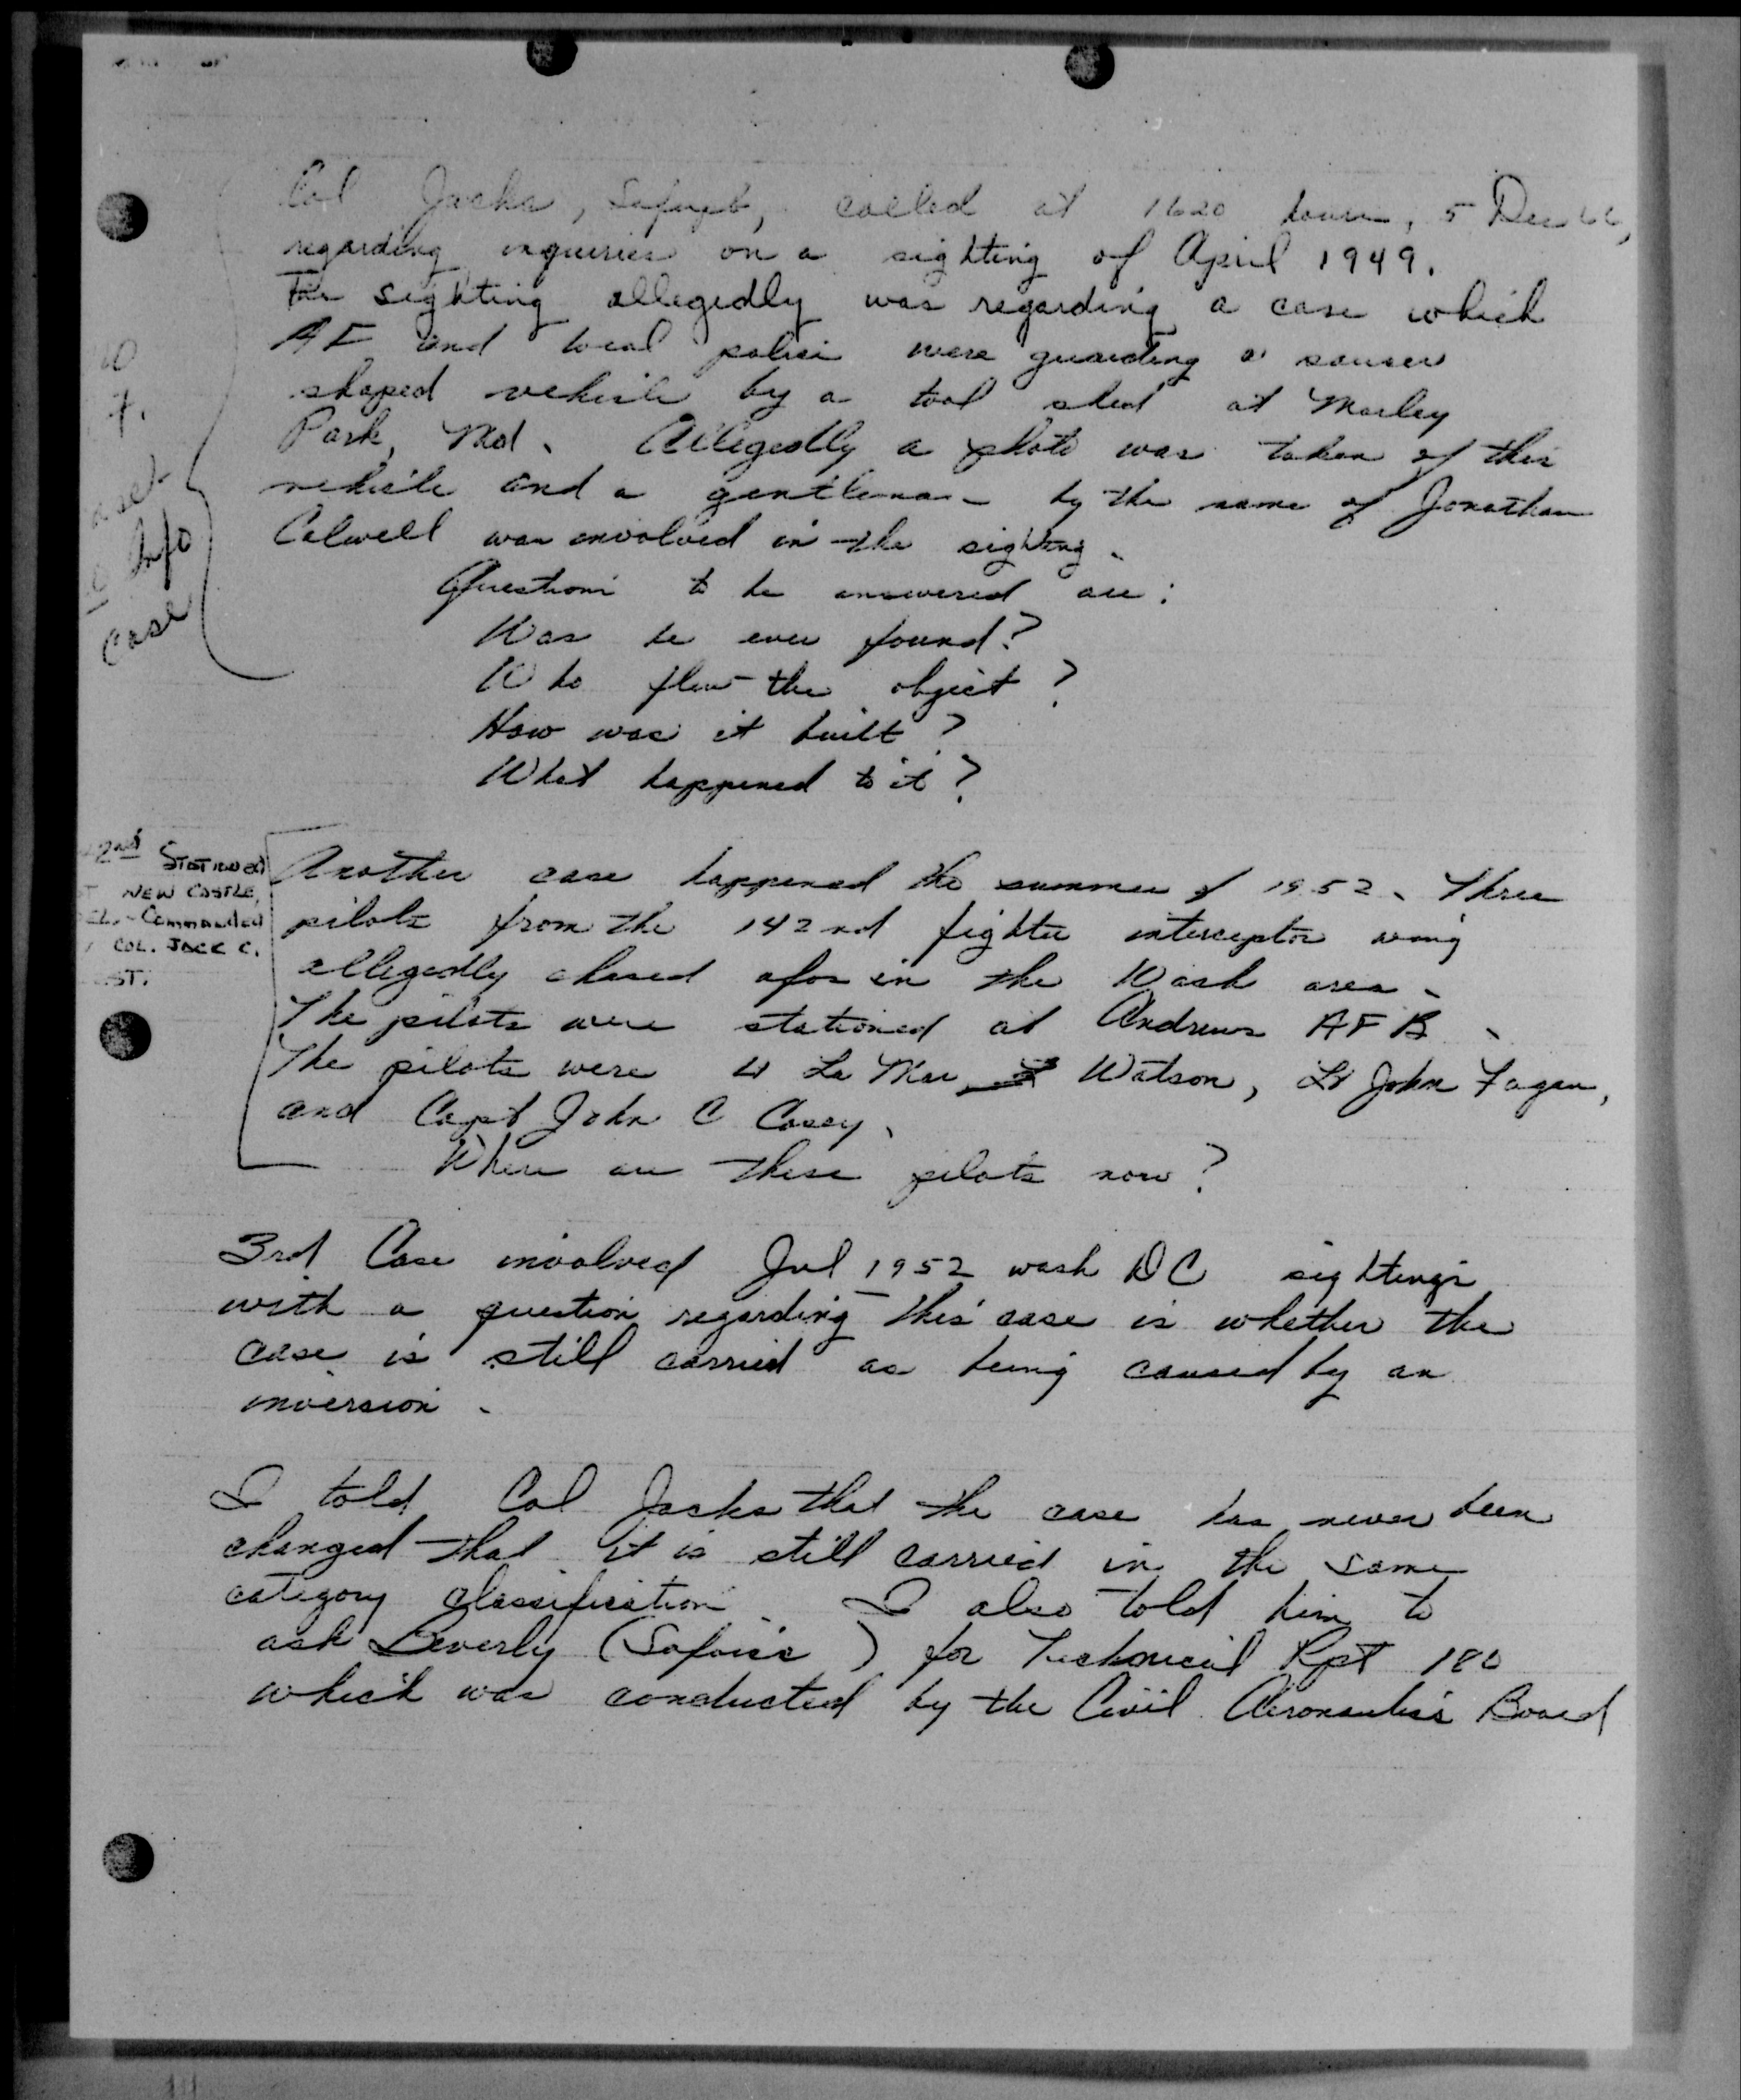 Col Jacks, called at 1620 hours, 5 Dec 66,
regarding inquiries on a sighting of April 1949.
The sighting allegedly was regarding a case which
AF and local police were guarding a saucer
shaped vehicle by a tool shed at Marley
Park, Md. Allegedly a photo was taken of this
vehicle and a gentleman by the name of Jonathan
Calwell was involved in the sighting.
Info
case
Questions to be answered are:
Was he ever found?
Who flew the object?
How was it built?
What happened to it?
2nd STATIONED
NEW CASTLE,
DEL. - Commanded
COL. JACK C.
ST.
Another case happened the summer of 1952. Three
pilots from the 142nd fighter interceptor wing
allegedly chased ufos in the Wash area.
The pilots were stationed at Andrews AFB.
The pilots were Lt La Mar Watson, Lt John Fagan,
and Capt John C Casey.
Where are these pilots now?
3rd Case involved Jul 1952 wash DC sightings
with a question regarding this case is whether the
case is still carried as being caused by an
inversion.
I told Col Jacks that the case has never been
changed that it is still carried in the same
category classification. I also told him to
ask Beverly ( ) for Technical Rpt 180
which was conducted by the Civil Aeronautics Board